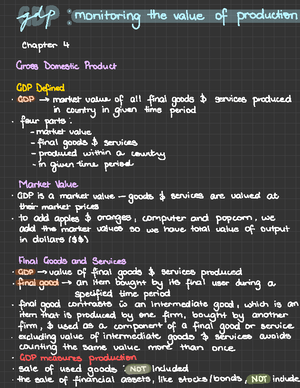 gdp : monitoring the value of production
Chapter 4
Gross Domestic Product
GDP Defined
· GDP → market value of all final goods $ services produced
in country in given time period
· four parts:
- market value
- final goods $ services
- produced within a country
- in given time period
Market Value
· GDP is a market value – goods $ services are valued at
their market prices
· to add apples $ oranges, computer and popcorn, we
add the market values so we have total value of output
in dollars ($$)
Final Goods and Services
· GDP → value of final goods $ services produced
· final good → an item bought by its final user during a
specified time period
· final good contrasts w an intermediate good, which is an
item that is produced by one firm, bought by another
firm, $ used as a component of a final good or service
· excluding value of intermediate goods $ services avoids
counting the same value more than once.
· GDP measures production
· sale of used goods : NOT included
· the sale of financial assets, like stocks/bonds, NOT include